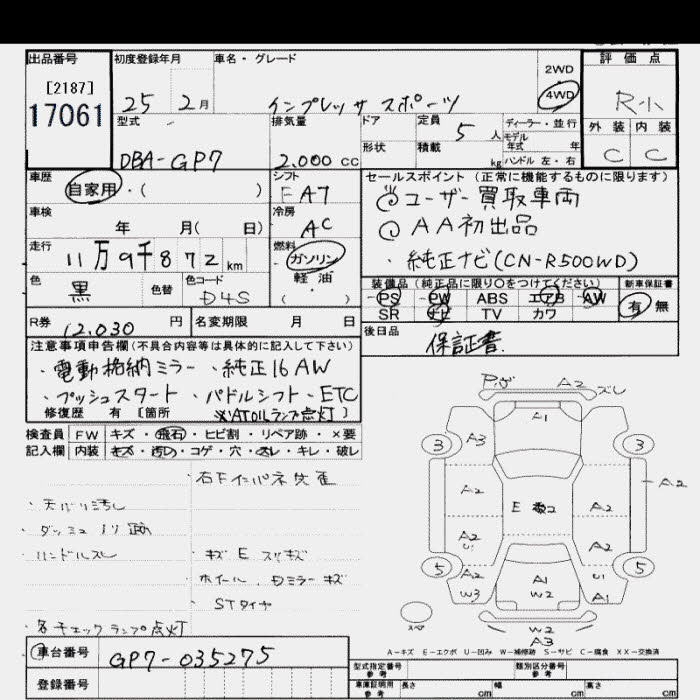 出品番号 初度登録年月 車名・グレード 評価点
[2187]
17061
25 2月 インプレッサ スポーツ 2WD 4WD R-小
型式 排気量 ドア 定員 5人 ディーラー・並行 外装 内装
モデル年式 年
DBA-GP7 2.000cc 形状 積載 kg ハンドル 左・右 C C
車歴 自家用・( ) シフト FA7 セールスポイント(正常に機能するものに限ります)
ユーザー買取車両
車検 年 月( 日) 冷房 AC
AA初出品
走行 11万9千872km 燃料 ガソリン
・純正ナビ(CN-R500WD)
色 黒 色替 色コード D4S 軽油・( )
装備品(純正品に限り○をつけてください) 新車保証書
PS PW ABS エアB AW 有 無
SR ナビ TV カワ
R券 12.030円 名変期限 月 日 後日品 保証書
注意事項申告欄(不具合内容等は具体的に記入して下さい)
・電動格納ミラー・純正16AW
・プッシュスタート・パドルシフト・ETC
修復歴 有[箇所 ※AT OILランプ点灯]
検査員 FW キズ・飛石・ヒビ割・リペア跡・×要
記入欄 内装 キズ・汚れ・コゲ・穴・スレ・キレ・破レ
・天バリ汚し
・ダッシュ
・ハンドルスレ
・キズ E スリキズ
・ホイール キズ
・STタイヤ
・各チェックランプ点灯
A2 ズレ
A1
3 A3 3
A2 A2 A2
E
A2 A2
U1
5 A2 A1 U1 5
W3 W2 A1
スペア
W2
A3
A-キズ E-エクボ U-凹み W-補修跡 S-サビ C-腐食 XX-交換済
車台番号 GP7-035275
型式指定番号 参考 類別区分番号 参考
登録番号
車庫証明用 参考 長さ cm 幅 cm 高さ cm